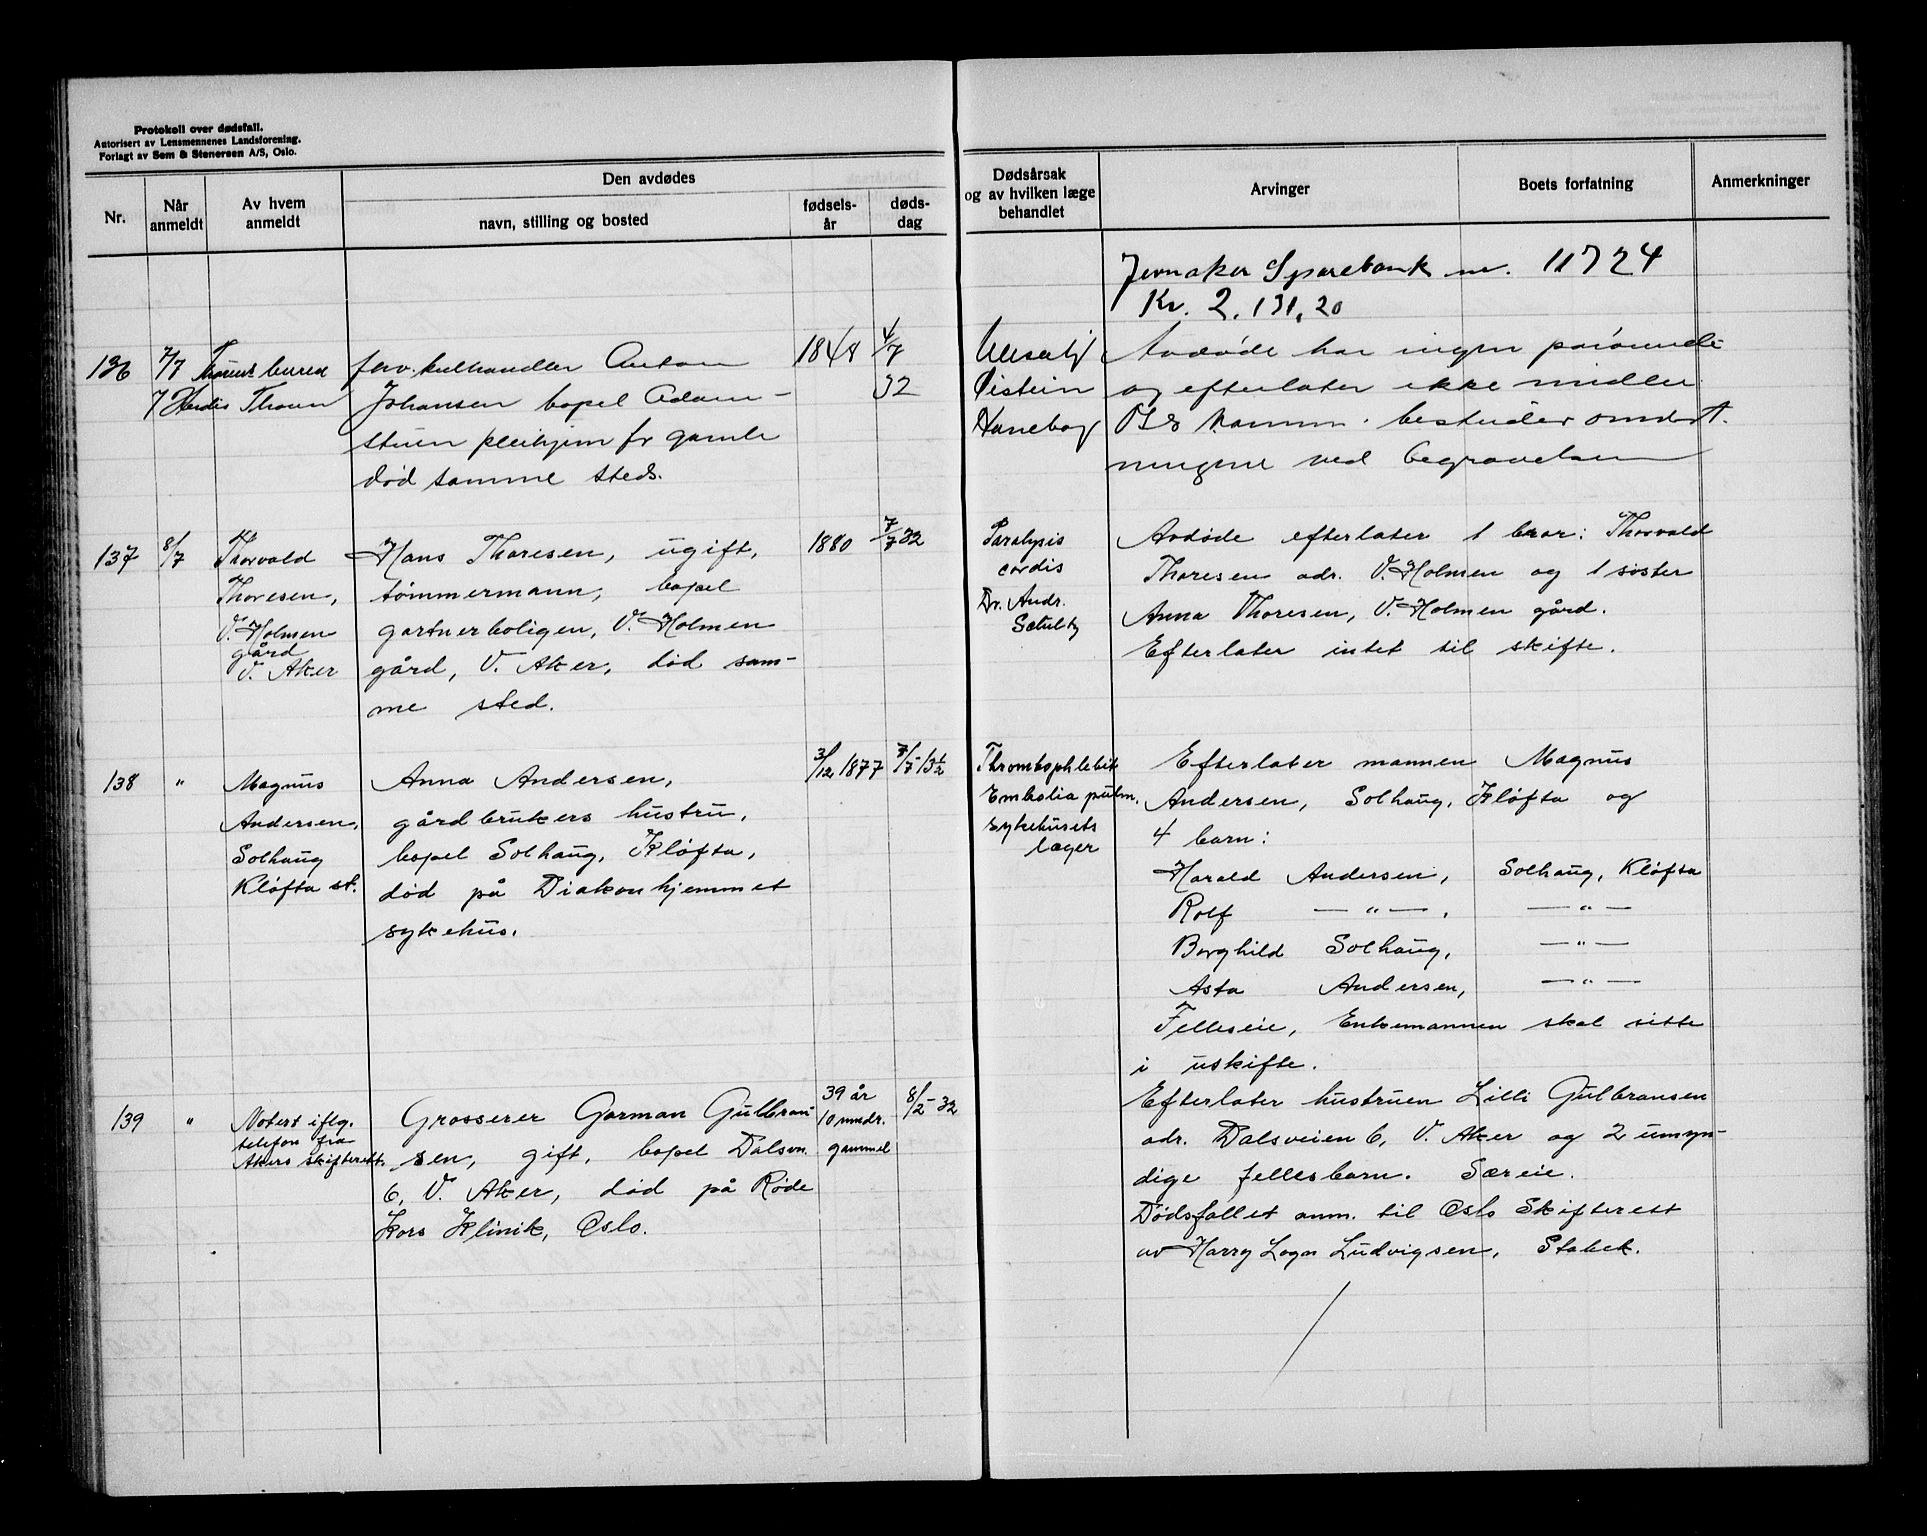 Protokoll over dødsfall.
Autorisert av Lensmennenes Landsforening.
Forlagt av Sem & Stenersen A/S, Oslo.
Nr.
Når anmeldt
Av hvem anmeldt
Den avdødes
navn, stilling og bosted
fødsels-år
døds-dag
Dødsårsak og av hvilken læge behandlet
Arvinger
Boets forfatning
Anmerkninger
Jevnaker Sparebank nr. 11724
Kr. 2.131,20
136
7/7
Herdis Thoun
forv. kulhandler Anton
Johansen bopel Adam-
stuen pleihjem for gamle
død samme steds.
1848
4/7
32
Ullevål
Øistein
Hanebog
Avdøde har ingen pårørende
og efterlater ikke midler.
bestrider omkost-
ningene ved begravelsen
137
8/7
Thorvald
Thoresen,
V. Holmen
gård
V. Aker
Hans Thoresen, ugift,
tømmermann, bopel
gartnerboligen, V. Holmen
gård, V. Aker, død sam-
me sted.
1880
7/7 32
Paralysis
cordis
Dr. Andr.
Avdøde efterlater 1 bror: Thorvald
Thoresen adr. V. Holmen og 1 søster
Anna Thoresen, V. Holmen gård.
Efterlater intet til skifte.
138
"
Magnus
Andersen,
Solhaug
Kløfta st.
Anna Andersen,
gårdbrukers hustru,
bopel Solhaug, Kløfta,
død på Diakonhjemmet
sykehus.
3/12 1877
7/7-132
Thrombophlebit
Embolia pulm.
sykehusets
læger
Efterlater mannen Magnus
Andersen, Solhaug, Kløfta og
4 barn:
Harald Andersen, Solhaug, Kløfta
Rolf —"—, —"—
Borghild Solhaug, —"—
Asta Andersen, —"—
Felleseie, Enkemannen skal sitte
i uskifte.
139
"
Notert iflg.
telefon fra
Akers skifterett.
Grosserer Gorman Gulbran-
sen, gift, bopel Dalsvn.
6, V. Aker, død på Røde
Kors Klinik, Oslo.
39 år
10 mndr.
gammel
8/2-32
Efterlater hustruen Lilli Gulbransen
adr. Dalsveien 6, V. Aker og 2 umyn-
dige fellesbarn. Særeie.
Dødsfallet anm. til Oslo Skifterett
av Harry Logn Ludvigsen, Stabek.